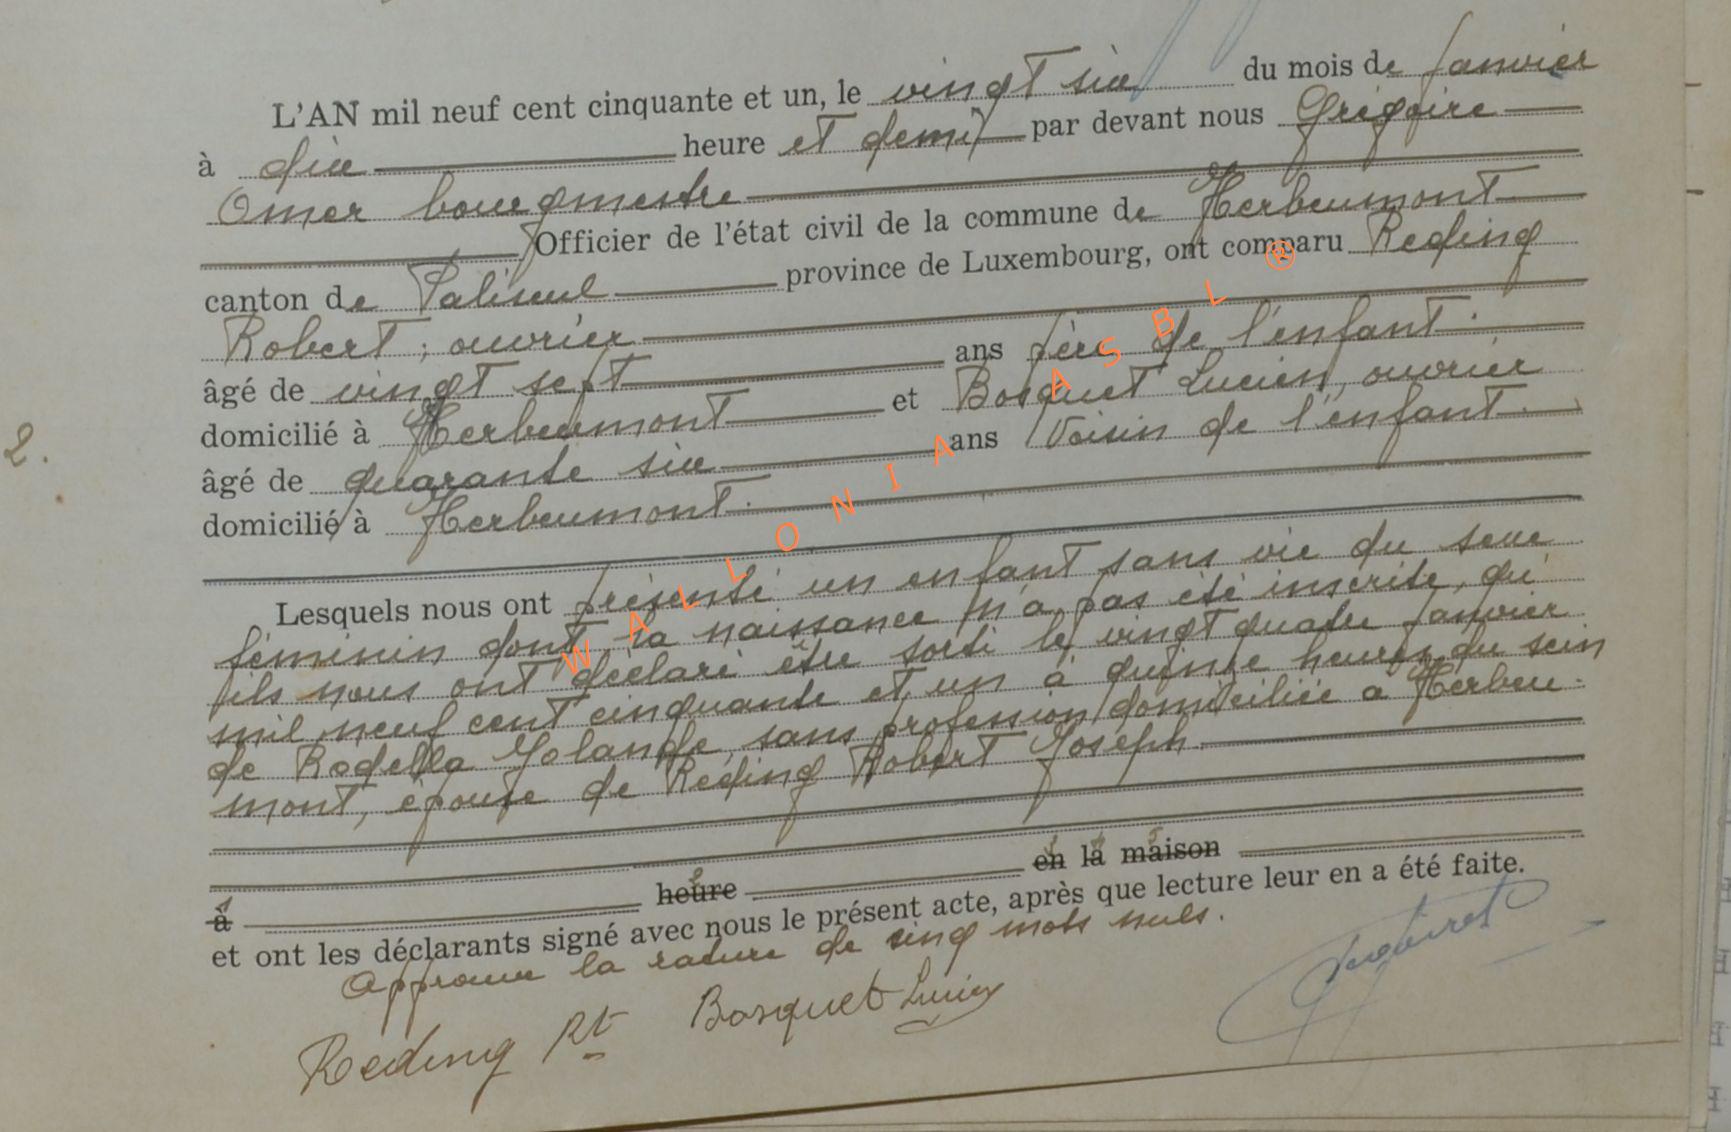 L'AN mil neuf cent cinquante et un, le vingt six du mois de Janvier
à dix heure et demi par devant nous Grégoire
Omer bourgmestre
Officier de l'état civil de la commune de Herbeumont
canton de Paliseul province de Luxembourg, ont comparu Reding
Robert, ouvrier
âgé de vingt sept ans père de l'enfant.
domicilié à Herbeumont et Bosquet Lucien, ouvrier
âgé de quarante six ans Voisin de l'enfant.
domicilié à Herbeumont.
2.
Lesquels nous ont présenté un enfant sans vie du sexe
féminin dont la naissance n'a pas été inscrite, qu'
ils nous ont déclaré être sorti le vingt quatre Janvier
mil neuf cent cinquante et un à quinze heures du sein
de Rodella Yolande, sans profession domiciliée à Herbeu-
mont, épouse de Réding Robert Joseph.
à heure en la maison
et ont les déclarants signé avec nous le présent acte, après que lecture leur en a été faite.
Approuve la rature de cinq mots nuls.
Reding Rt Bosquet Lucien
WALLONIA ASBL ®